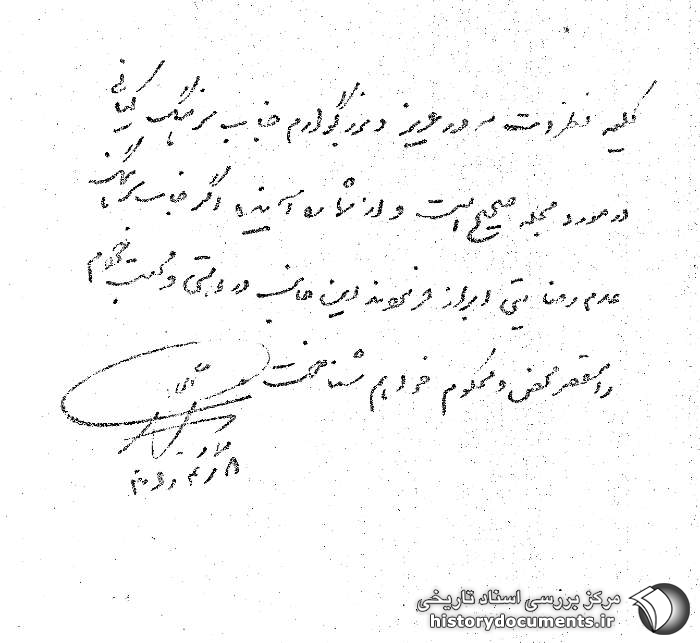 کلیه نظرات برادر عزیز و بزرگوارم جناب سرهنگ کیانی
در مورد مجله صحیح است و از شماره آینده اگر جناب سرهنگ
عدم رضایتی ابراز فرمودند این جانب و محبت خانم
را مقصر محض و محکوم خواهیم شناخت
مرکز بررسی اسناد تاریخی
historydocuments.ir